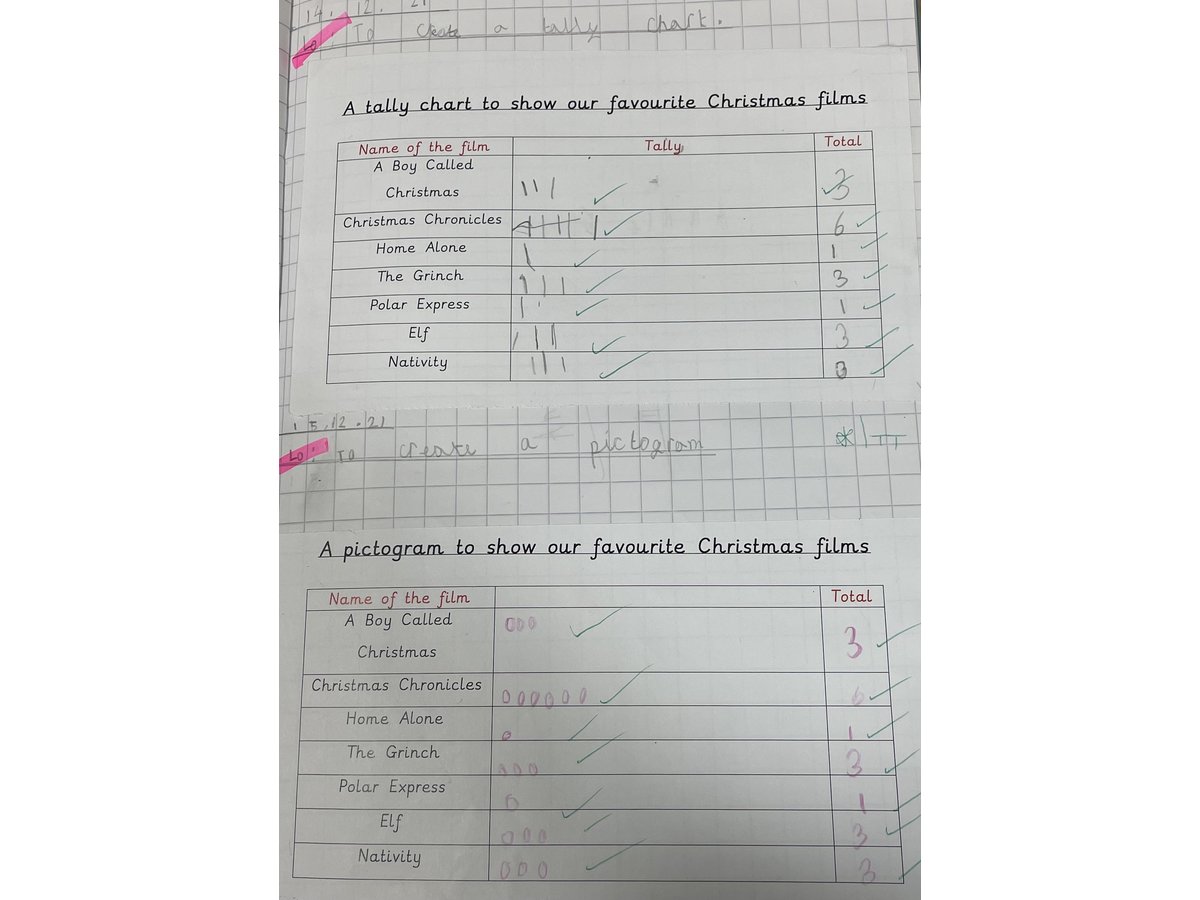 14.12.21
LO: To create a tally chart.
A tally chart to show our favourite Christmas films
Name of the film Tally Total
A Boy Called
Christmas 3
Christmas Chronicles 6
Home Alone 1
The Grinch 3
Polar Express 1
Elf 3
Nativity 3
15.12.21
LO: To create a pictogram
A pictogram to show our favourite Christmas films
Name of the film Total
A Boy Called
Christmas 3
Christmas Chronicles 6
Home Alone 1
The Grinch 3
Polar Express 1
Elf 3
Nativity 3